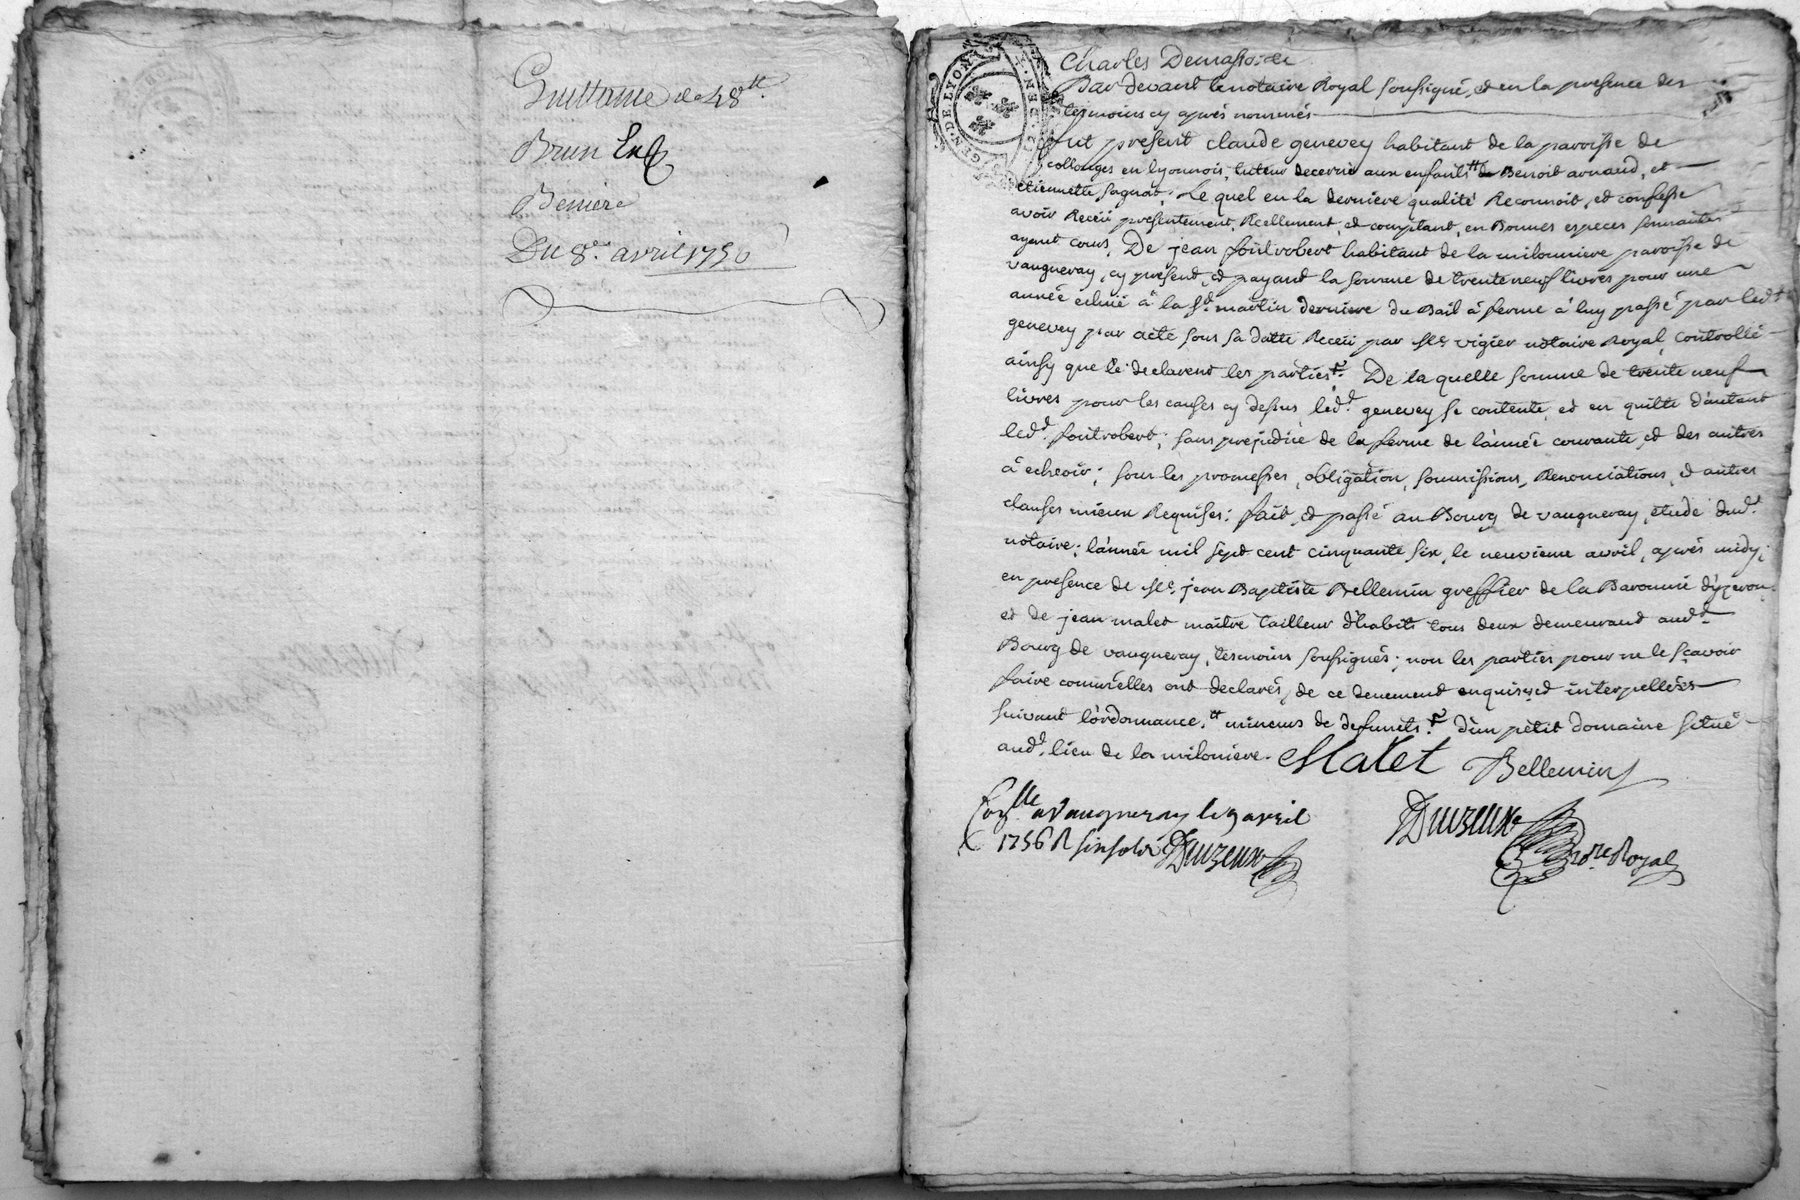 Quittance de 48tt
Brun
Beniere
Du 8e avril 1756
GEN·DE·LYON
Charles
Par devant le notaire Royal soussigné, et en la presence des
tesmoins cy aprés nommés
fut present claude genevey habitant de la paroisse de
collonges en lyonnois, tuteur decerné aux enfants tt de Benoit arnaud, et
etiennette ; Le quel en la derniere qualité Reconnoit, et confesse
avoir Receü presentement, Réellement, et comptant, en Bonnes especes sonnantes
ayent cours, De jean foülrobert habitant de la milonniere paroisse de
vaugneray, cy present, et payant la somme de trente neuf livres pour une
année echüe â la St martin derniere du Bail â ferme â luy passé par ledt
genevey par acte sous sa datte Receü par Me vigier notaire Royal, controllé
ainsy que le declarent les parties. De la quelle somme de trente neuf
livres pour les causes cy dessus ledt. genevey se contente, et en quitte d'autant
ledt. foulrobert; sans prejudice de la ferme de l'année courante, et des autres
â echeoir; sous les promesses, obligation, soumissions, Renonciations, et autres
clauses mieux Requises: fait, et passé au Bourg de vaugneray, étude dudt.
notaire; l'année mil sept cent cinquante six, le neuvieme avril, aprés midy;
en presence de Me. jean Baptiste Bellemin greffier de la Baronnie d'yzeron,
et de jean malet maître tailleur d'habits tous deux demeurant audt.
Bourg de vaugneray, tesmoins soussignés; non les parties pour ne le sçavoir
faire comm'elles ont declarés, de ce deuement enquises, et interpellées
suivant l'ordonnance. tt mineurs de defunts. d'un petit domaine situé
audt. lieu de la miloniere. Malet Bellemin
Conlle a Vaugneray le 9 avril
1756 R six sols Duzeux
Duzeux
nore Royal